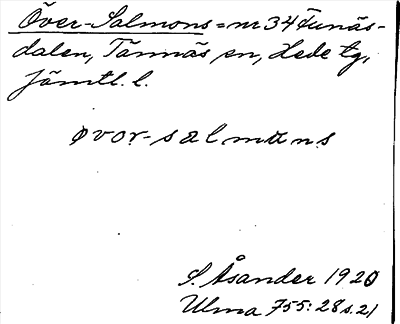 Över-Salmons = nr 34 Funäs-
dalen, Tännäs sn, Hede tg,
Jämtl. l.
øvor-salmans
S. Åsander 1920
Ulma 755: 28 s. 21